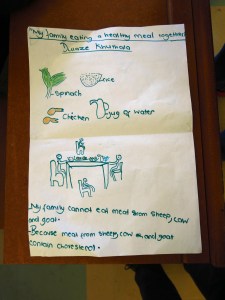 "My family eating a healthy meal together"
rice
Spinach
Chicken
Jug of water
My family cannot eat meat from sheep, cow
and goat.
-Because meat from sheep, cow and goat
contain cholesterol.